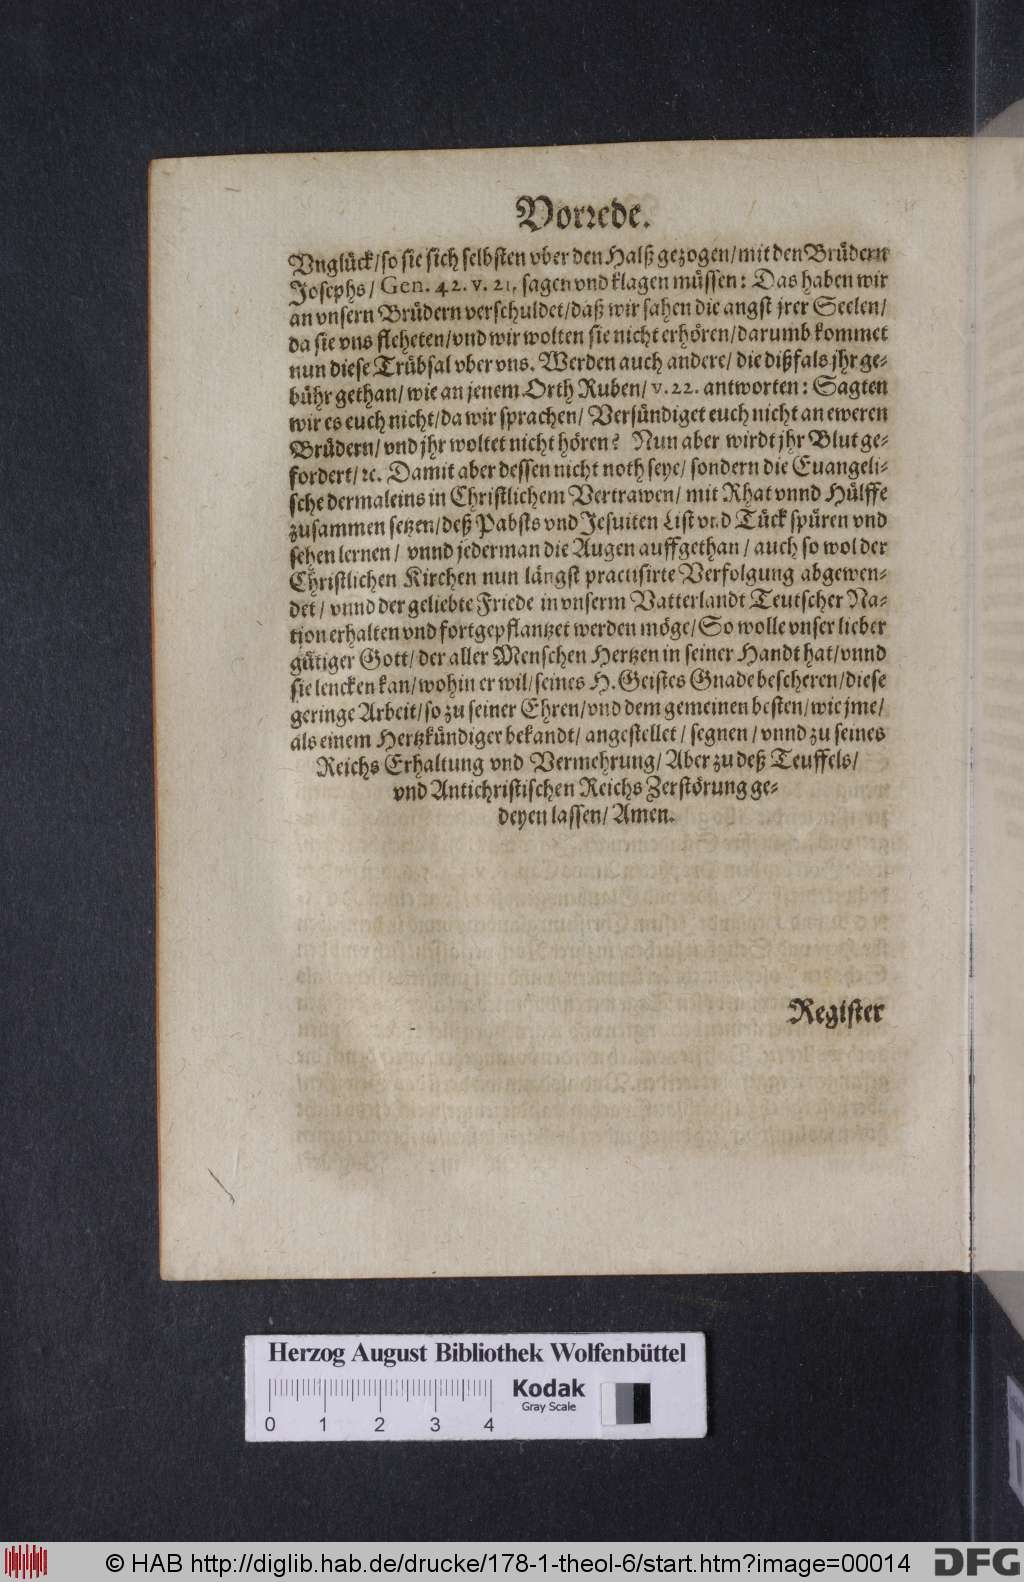 Vorrede.
Vnglück/ so sie sich selbsten vber den Halß gezogen/ mit den Brüdern
Josephs/ Gen. 42. v. 21. sagen vnd klagen müssen: Das haben wir
an vnsern Brüdern verschuldet/ daß wir sahen die angst jrer Seelen/
da sie vns fleheten/ vnd wir wolten sie nicht erhören/ darumb kommet
nun diese Trübsal vber vns. Werden auch andere/ die dißfals jhr ge-
bühr gethan/ wie an jenem Orth Ruben/ v. 22. antworten: Sagten
wir es euch nicht/ da wir sprachen/ Versündiget euch nicht an eweren
Brüdern/ vnd jhr woltet nicht hören? Nun aber wirdt jhr Blut ge-
fordert/ ꝛc. Damit aber dessen nicht noth seye/ sondern die Euangeli-
sche dermaleins in Christlichem Vertrawen/ mit Rhat vnnd Hülffe
zusammen setzen/ deß Pabsts vnd Jesuiten List vnd Tück spüren vnd
sehen lernen/ vnnd jederman die Augen auffgethan/ auch so wol der
Christlichen Kirchen nun längst practisirte Verfolgung abgewen-
det/ vnnd der geliebte Friede in vnserm Vatterlandt Teutscher Na-
tion erhalten vnd fortgepflantzet werden möge/ So wolle vnser lieber
gütiger Gott/ der aller Menschen Hertzen in seiner Handt hat/ vnnd
sie lencken kan/ wohin er wil/ seines H. Geistes Gnade bescheren/ diese
geringe Arbeit/ so zu seiner Ehren/ vnd dem gemeinen besten/ wie jme/
als einem Hertzkündiger bekandt/ angestellet/ segnen/ vnnd zu seines
Reichs Erhaltung vnd Vermehrung/ Aber zu deß Teuffels/
vnd Antichristischen Reichs Zerstörung ge-
deyen lassen/ Amen.
Register
Herzog August Bibliothek Wolfenbüttel
0 1 2 3 4
Kodak
Gray Scale
© HAB http://diglib.hab.de/drucke/178-1-theol-6/start.htm?image=00014
DFG